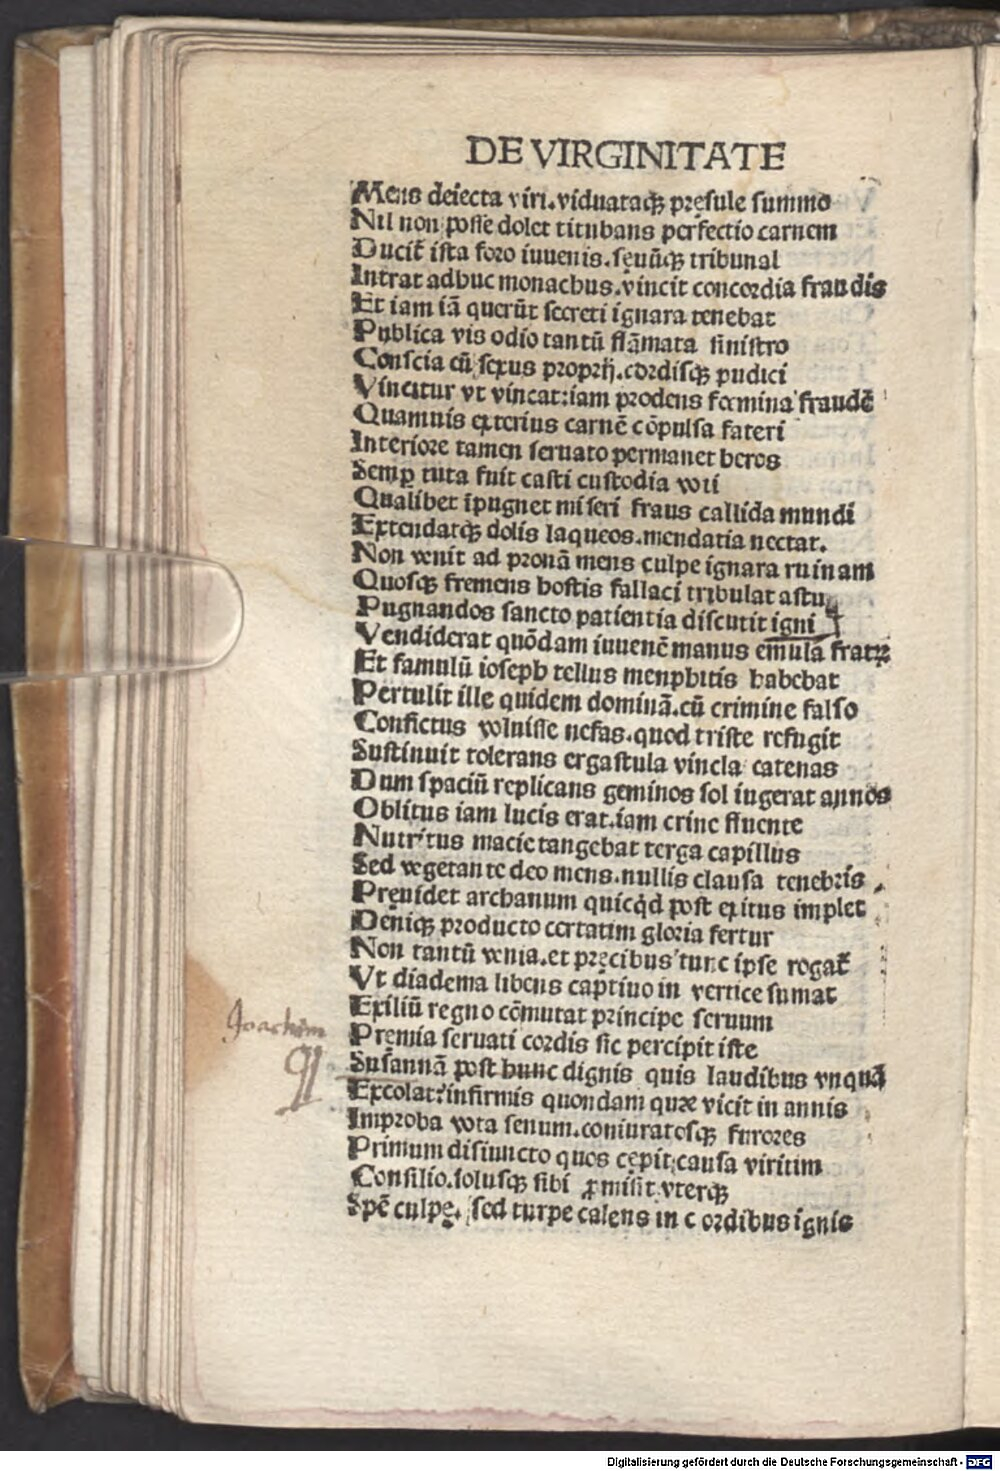 DE VIRGINITATE
Mens deiecta viri.viduataqꝫ pręsule summo
Nil non posse dolet titubans perfectio carnem
Ducit̃ ista foro iuuenis.sęuũqꝫ tribunal
Intrat adhuc monachus.vincit concordia fraudis
Et iam iã querũt secreti ignara tenebat
Publica vis odio tantũ flãmata sinistro
Conscia cũ sexus proprij.cordisqꝫ pudici
Vincitur vt vincat:iam prodens fœmina fraudẽ
Quamuis exterius carnẽ cõpulsa fateri
Interiore tamen seruato permanet heros
Semꝑ tuta fuit casti custodia voti
Qualibet ĩpugnet miseri fraus callida mundi
Extendatqꝫ dolis laqueos.mendatia nectat.
Non venit ad pronã mens culpe ignara ruinam
Quosqꝫ fremens hostis fallaci tribulat astu
Pugnandos sancto patientia discutit igni
Vendiderat quõdam iuuenẽ manus emula fratrꝫ
Et famulũ ioseph tellus menphitis habebat
Pertulit ille quidem dominã.cũ crimine falso
Confictus voluisse nefas.quod triste refugit
Sustinuit tolerans ergastula vincla catenas
Dum spaciũ replicans geminos sol iugerat annos
Oblitus iam lucis erat.iam crine fluente
Nutritus macie tangebat terga capillus
Sed vegetante deo mens.nullis clausa tenebris
Pręuidet archanum quicq̃d post exitus implet
Deniqꝫ producto certatim gloria fertur
Non tantũ venia.et pręcibus tunc ipse rogat̃
Vt diadema libens captiuo in vertice sumat
Exiliũ regno cõmutat principe seruum
Pręmia seruati cordis sic percipit iste
Joachim
Susannã post hunc dignis quis laudibus vnquã
Excolat?infirmis quondam quæ vicit in annis
Improba vota senum.coniuratosqꝫ furores
Primum disiuncto quos cępit causa viritim
Consilio.solusqꝫ sibi ꝓmisit vterqꝫ
Spẽ culpę. sed turpe calens in cordibus ignis
Digitalisierung gefördert durch die Deutsche Forschungsgemeinschaft - DFG